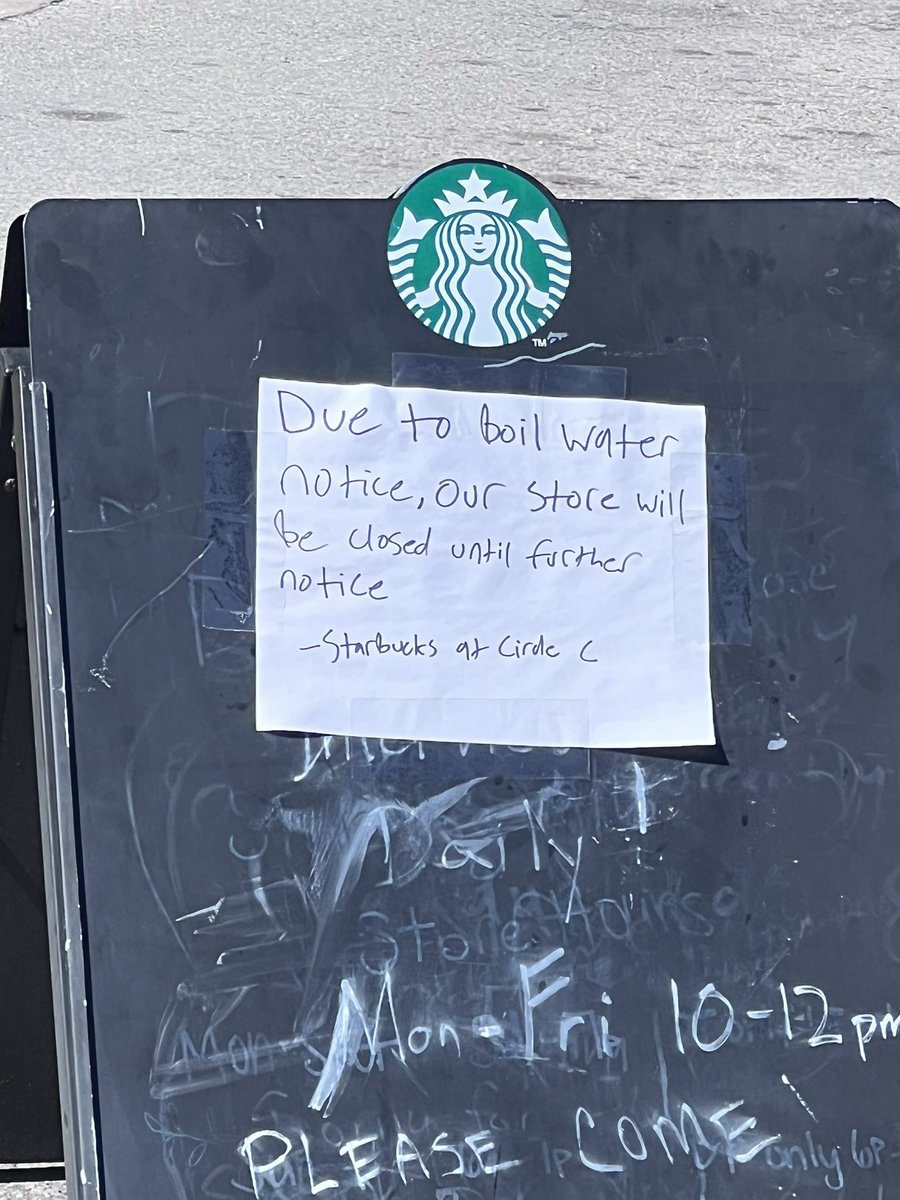 TM
Due to boil water
notice, our store will
be closed until further
notice
-Starbucks at Circle C
Daily
Store Hours
Mon-Fri 10-12pm
Mon-
PLEASE COME
only 6p-